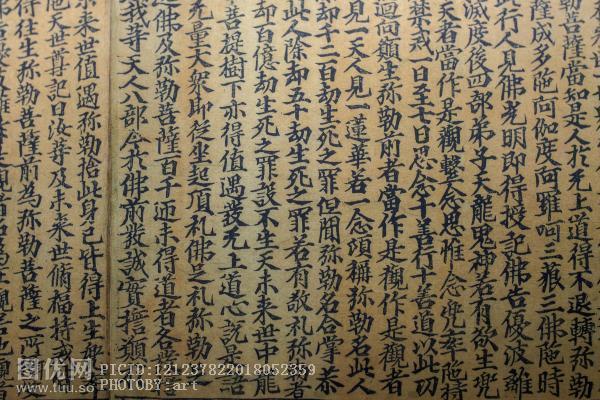 勒菩薩當知是人於无上道得不退轉弥勒
薩成多陁阿伽度阿羅呵三藐三佛陁時
此行人見佛光明即得授記佛告優波離
滅度後四部弟子天龍鬼神若有欲生兜
天者當作是觀繫念思惟念兜率陁持
禁戒一日至七日思念十善行十善道以此功
迴向願生弥勒前者當作是觀作是觀者
見一天人見一蓮華若一念頃稱弥勒名此人
却千二百劫生死之罪但聞弥勒名合掌恭
此人除却五十劫生死之罪若有敬礼弥勒
却百億劫生死之罪設不生天未來世中龍
菩提樹下亦得值遇發无上道心說是語
无量大衆即從坐起頂礼佛足礼弥勒
遶佛及弥勒菩薩百千迊未得道者各
我等天人八部今於佛前發誠實誓願
未來世值遇弥勒捨此身已皆得上生
他天世尊記曰汝等及未來世脩福持戒
得往生弥勒菩薩前為弥勒菩薩之所
图优网
www.tuu.so
PICID:121237822018052359
PHOTOBY:art